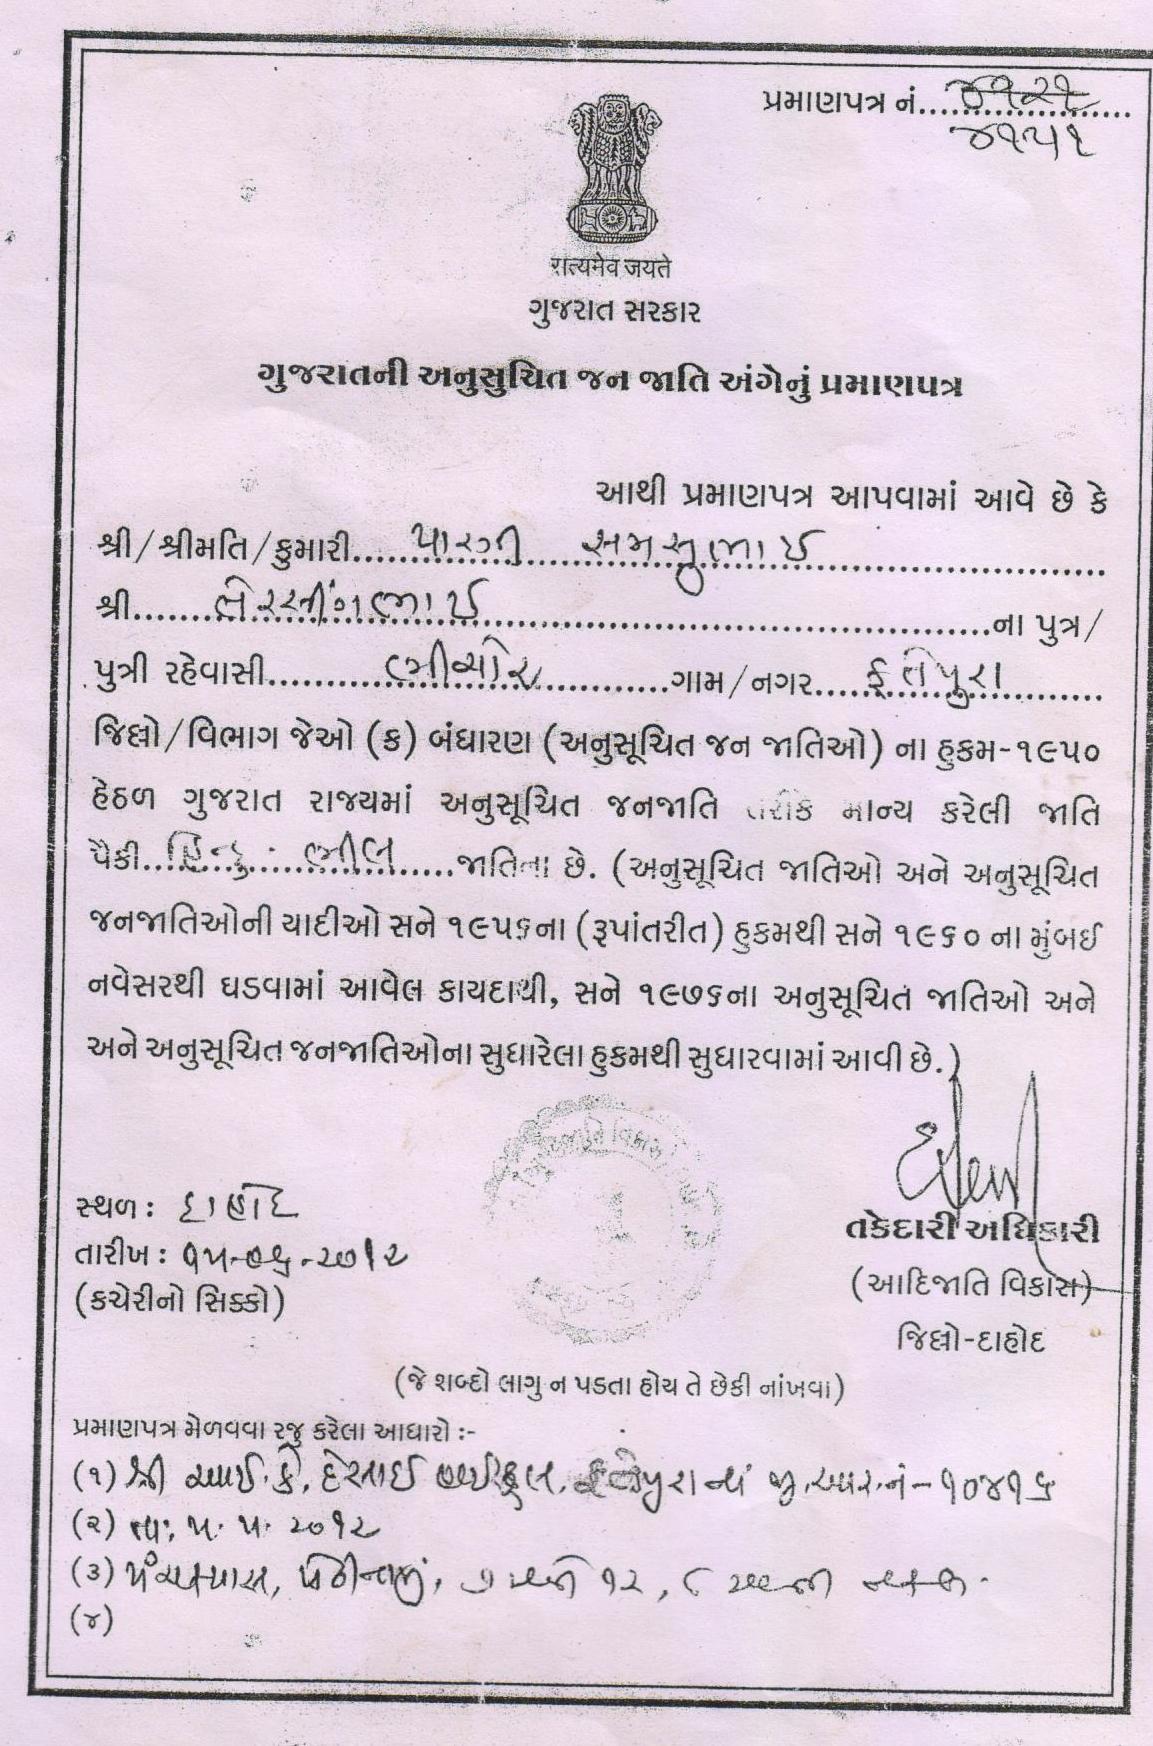 પ્રમાણપત્ર નં.
૪૧૫૧
सत्यमेव जयते
ગુજરાત સરકાર
ગુજરાતની અનુસુચિત જન જાતિ અંગેનું પ્રમાણપત્ર
આથી પ્રમાણપત્ર આપવામાં આવે છે કે
શ્રી/શ્રીમતિ/કુમારી..... પારગી સમસુભાઈ
શ્રી..... ના પુત્ર/
પુત્રી રહેવાસી..... ગામ/નગર..... ફતેપુરા
જિલ્લો/વિભાગ જેઓ (ક) બંધારણ (અનુસૂચિત જન જાતિઓ) ના હુકમ-૧૯૫૦
હેઠળ ગુજરાત રાજ્યમાં અનુસૂચિત જનજાતિ તરીકે માન્ય કરેલી જાતિ
પૈકી..... હિન્દુ ભીલ ..... જાતિના છે. (અનુસૂચિત જાતિઓ અને અનુસૂચિત
જનજાતિઓની યાદીઓ સને ૧૯૫૬ના (રૂપાંતરીત) હુકમથી સને ૧૯૬૦ ના મુંબઈ
નવેસરથી ઘડવામાં આવેલ કાયદાથી, સને ૧૯૭૬ના અનુસૂચિત જાતિઓ અને
અને અનુસૂચિત જનજાતિઓના સુધારેલા હુકમથી સુધારવામાં આવી છે.)
સ્થળ : દાહોદ
તારીખ : ૧૫-૦૬-૨૦૧૨
(કચેરીનો સિક્કો)
તકેદારી અધિકારી
(આદિજાતિ વિકાસ)
જિલ્લો-દાહોદ
(જે શબ્દો લાગુ ન પડતા હોય તે છેકી નાંખવા)
પ્રમાણપત્ર મેળવવા રજુ કરેલા આધારો :-
(૧) શ્રી આઈ.કે. દેસાઈ હાઈસ્કુલ, ફતેપુરાના જી.આર.નં-૧૦૪૧૬
(૨) તા. ૫.૫.૨૦૧૨
(૩) પંચક્યાસ, ૭ અને ૧૨, ૮ અની નકલ.
(૪)